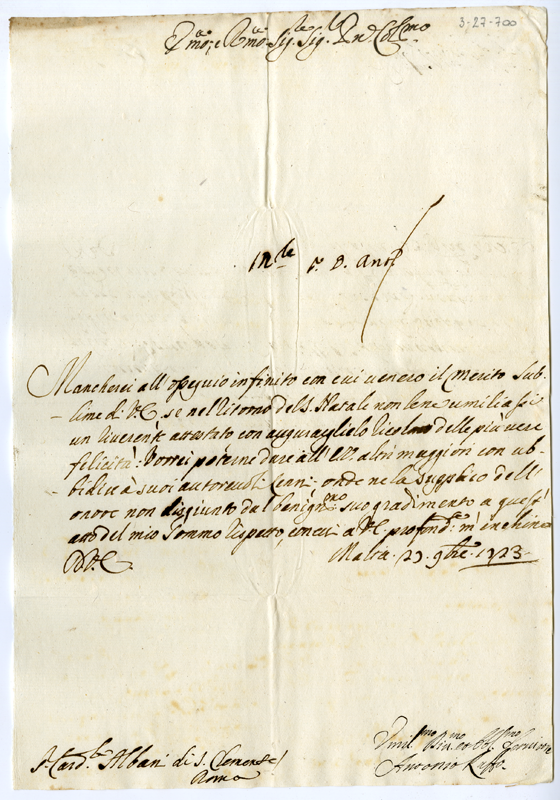 3-27-700
Em̃o, e Rmo Sig.re Sig.r Pñe Col.mo
Mancherei all'ossequio infinito con cui venero il merito Sub-
lime di V.E. se nel ritorno del S. Natale non le ne umiliassi
un riverente attestato con augurargliele ricolmo delle più vere
felicità: Vorrei poterne dare all'E.V. altri maggiori con ub-
bidire à suoi autorevoli cenni: onde ne la supplico dell'
onore non disgiunto dal benig.mo suo gradimento a quest'
atto del mio sommo rispetto, con cui a V.E. profond.e m'inchino
D.V.E. Malta. 29. 9bre. 1723
S.r Card.le Albani di S. Clemente
Roma
Umil.mo Div.mo ed Obl.mo Servitore
Antonio